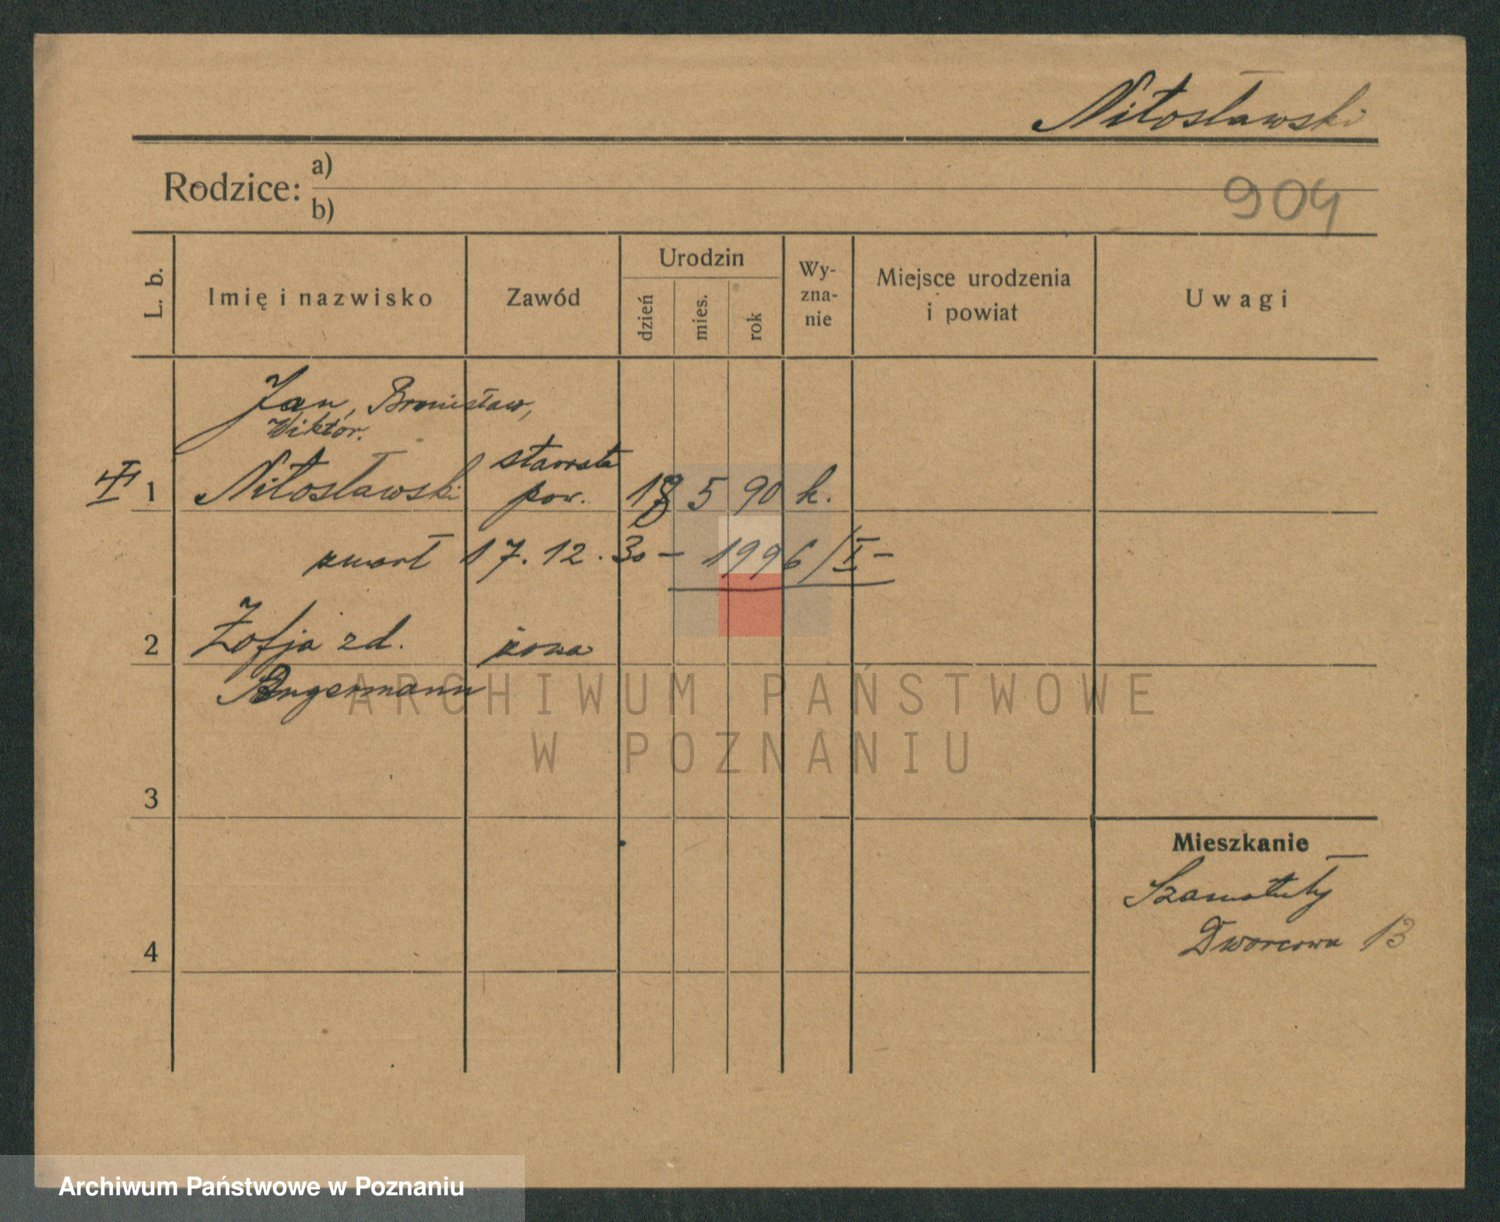 Nitosławski
Rodzice: a)
b)
904
L. b.
Imię i nazwisko
Zawód
Urodzin
dzień
mies.
rok
Wy-
zna-
nie
Miejsce urodzenia
i powiat
Uwagi
Jan, Bronisław,
Wiktor.
starosta
1 Nitosławski pow. 18 5 90 k.
zmarł 17.12.30 – 1996/I –
2 Zofja zd. żona
Angermann
ARCHIWUM PAŃSTWOWE
W POZNANIU
3
Mieszkanie
Szamotuły
Dworcowa 13
4
Archiwum Państwowe w Poznaniu